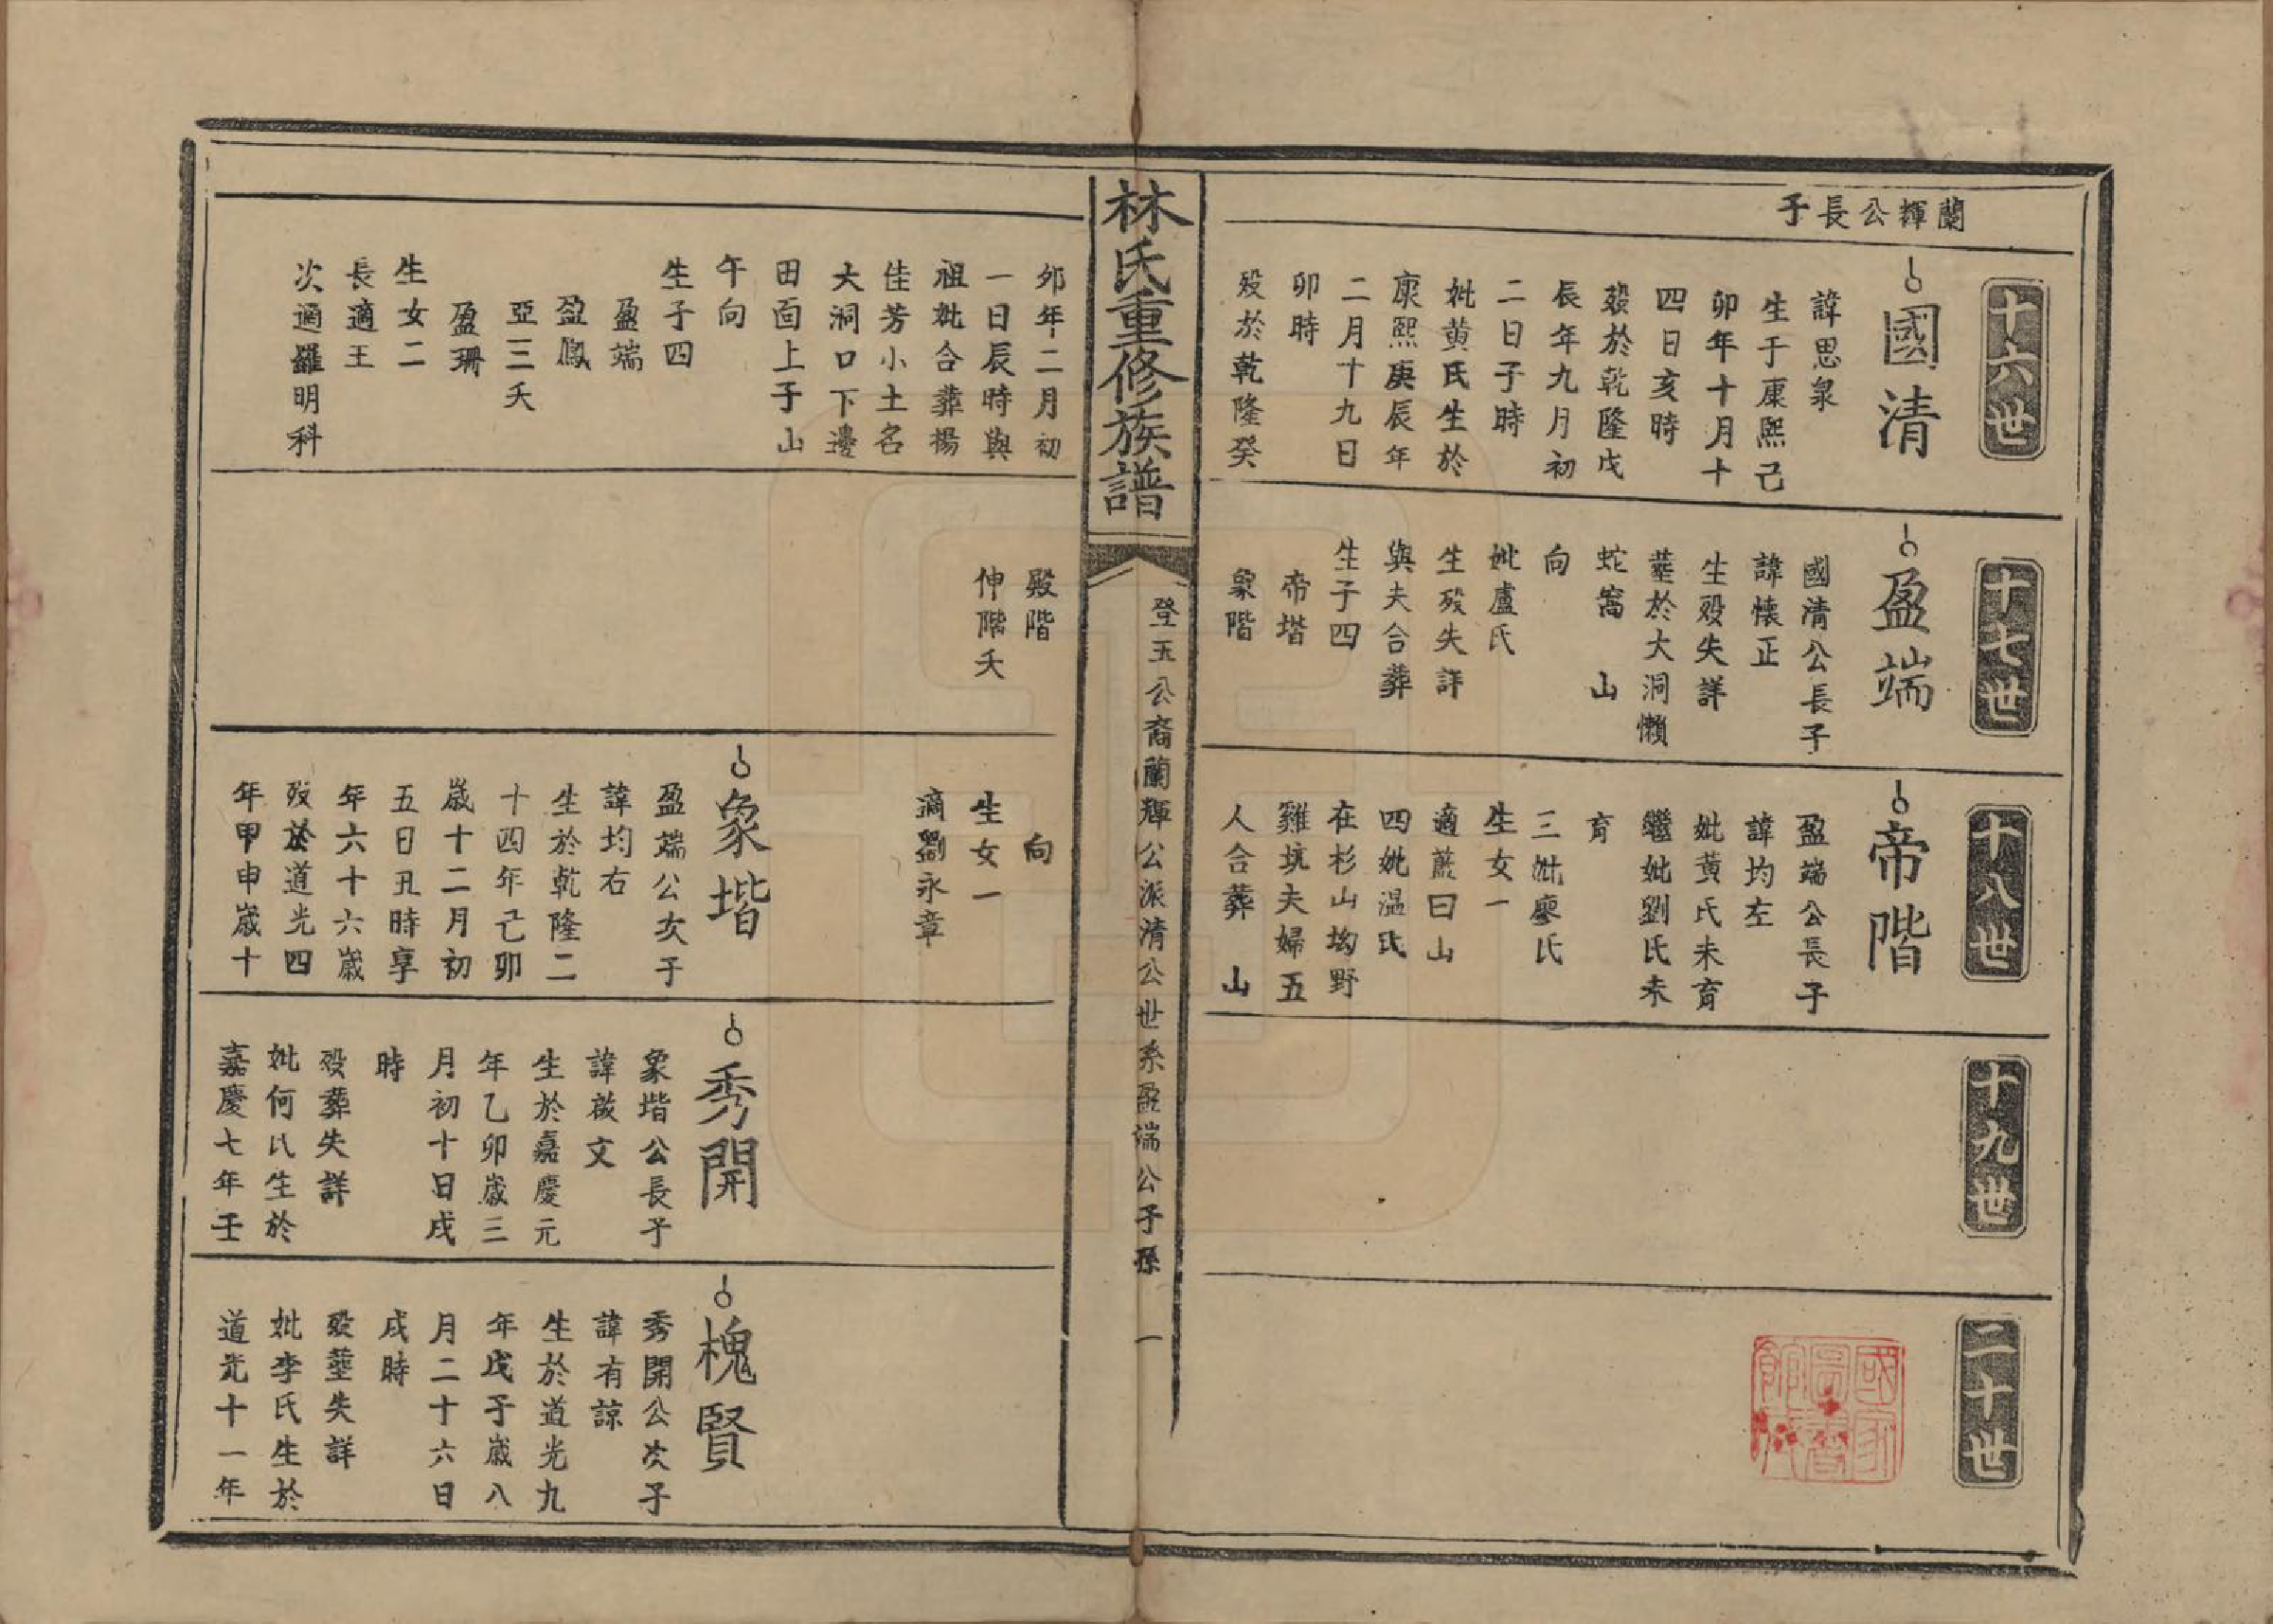 蘭輝公長子
十六世
國清
諱思泉
生于康熙己
卯年十月十
四日亥時
歿於乾隆戊
辰年九月初
二日子時
妣黄氏生於
康熙庚辰年
二月十九日
卯時
歿於乾隆癸
十七世
盈端
國清公長子
諱懐正
生歿失詳
塟於大洞懶
蛇窩 山
向
妣盧氏
生歿失詳
與夫合葬
生子四
帝堦
象階
十八世
帝階
盈端公長子
諱均左
妣黄氏未育
繼妣劉氏未
育
三妣廖氏
生女一
適藍曰山
四妣温氏
在杉山坳野
雞坑夫婦五
人合葬 山
十九世
二十世
林氏重修族譜
登玉公裔蘭輝公派清公世系盈端公子孫
一
夘年二月初
一日辰時與
祖妣合葬楊
佳芳小土名
大洞口下邊
田面上子山
午向
生子四
盈端
盈鳳
亞三夭
盈珊
生女二
長適王
次適羅明科
殿階
伸階夭
向
生女一
適劉永章
象堦
盈端公次子
諱均右
生於乾隆二
十四年己卯
歲十二月初
五日丑時享
年六十六歲
歿於道光四
年甲申歲十
秀開
象堦公長子
諱啟文
生於嘉慶元
年乙卯歲三
月初十日戌
時
歿葬失詳
妣何氏生於
嘉慶七年壬
槐賢
秀開公次子
諱有諒
生於道光九
年戊子歲八
月二十六日
戌時
歿塟失詳
妣李氏生於
道光十一年